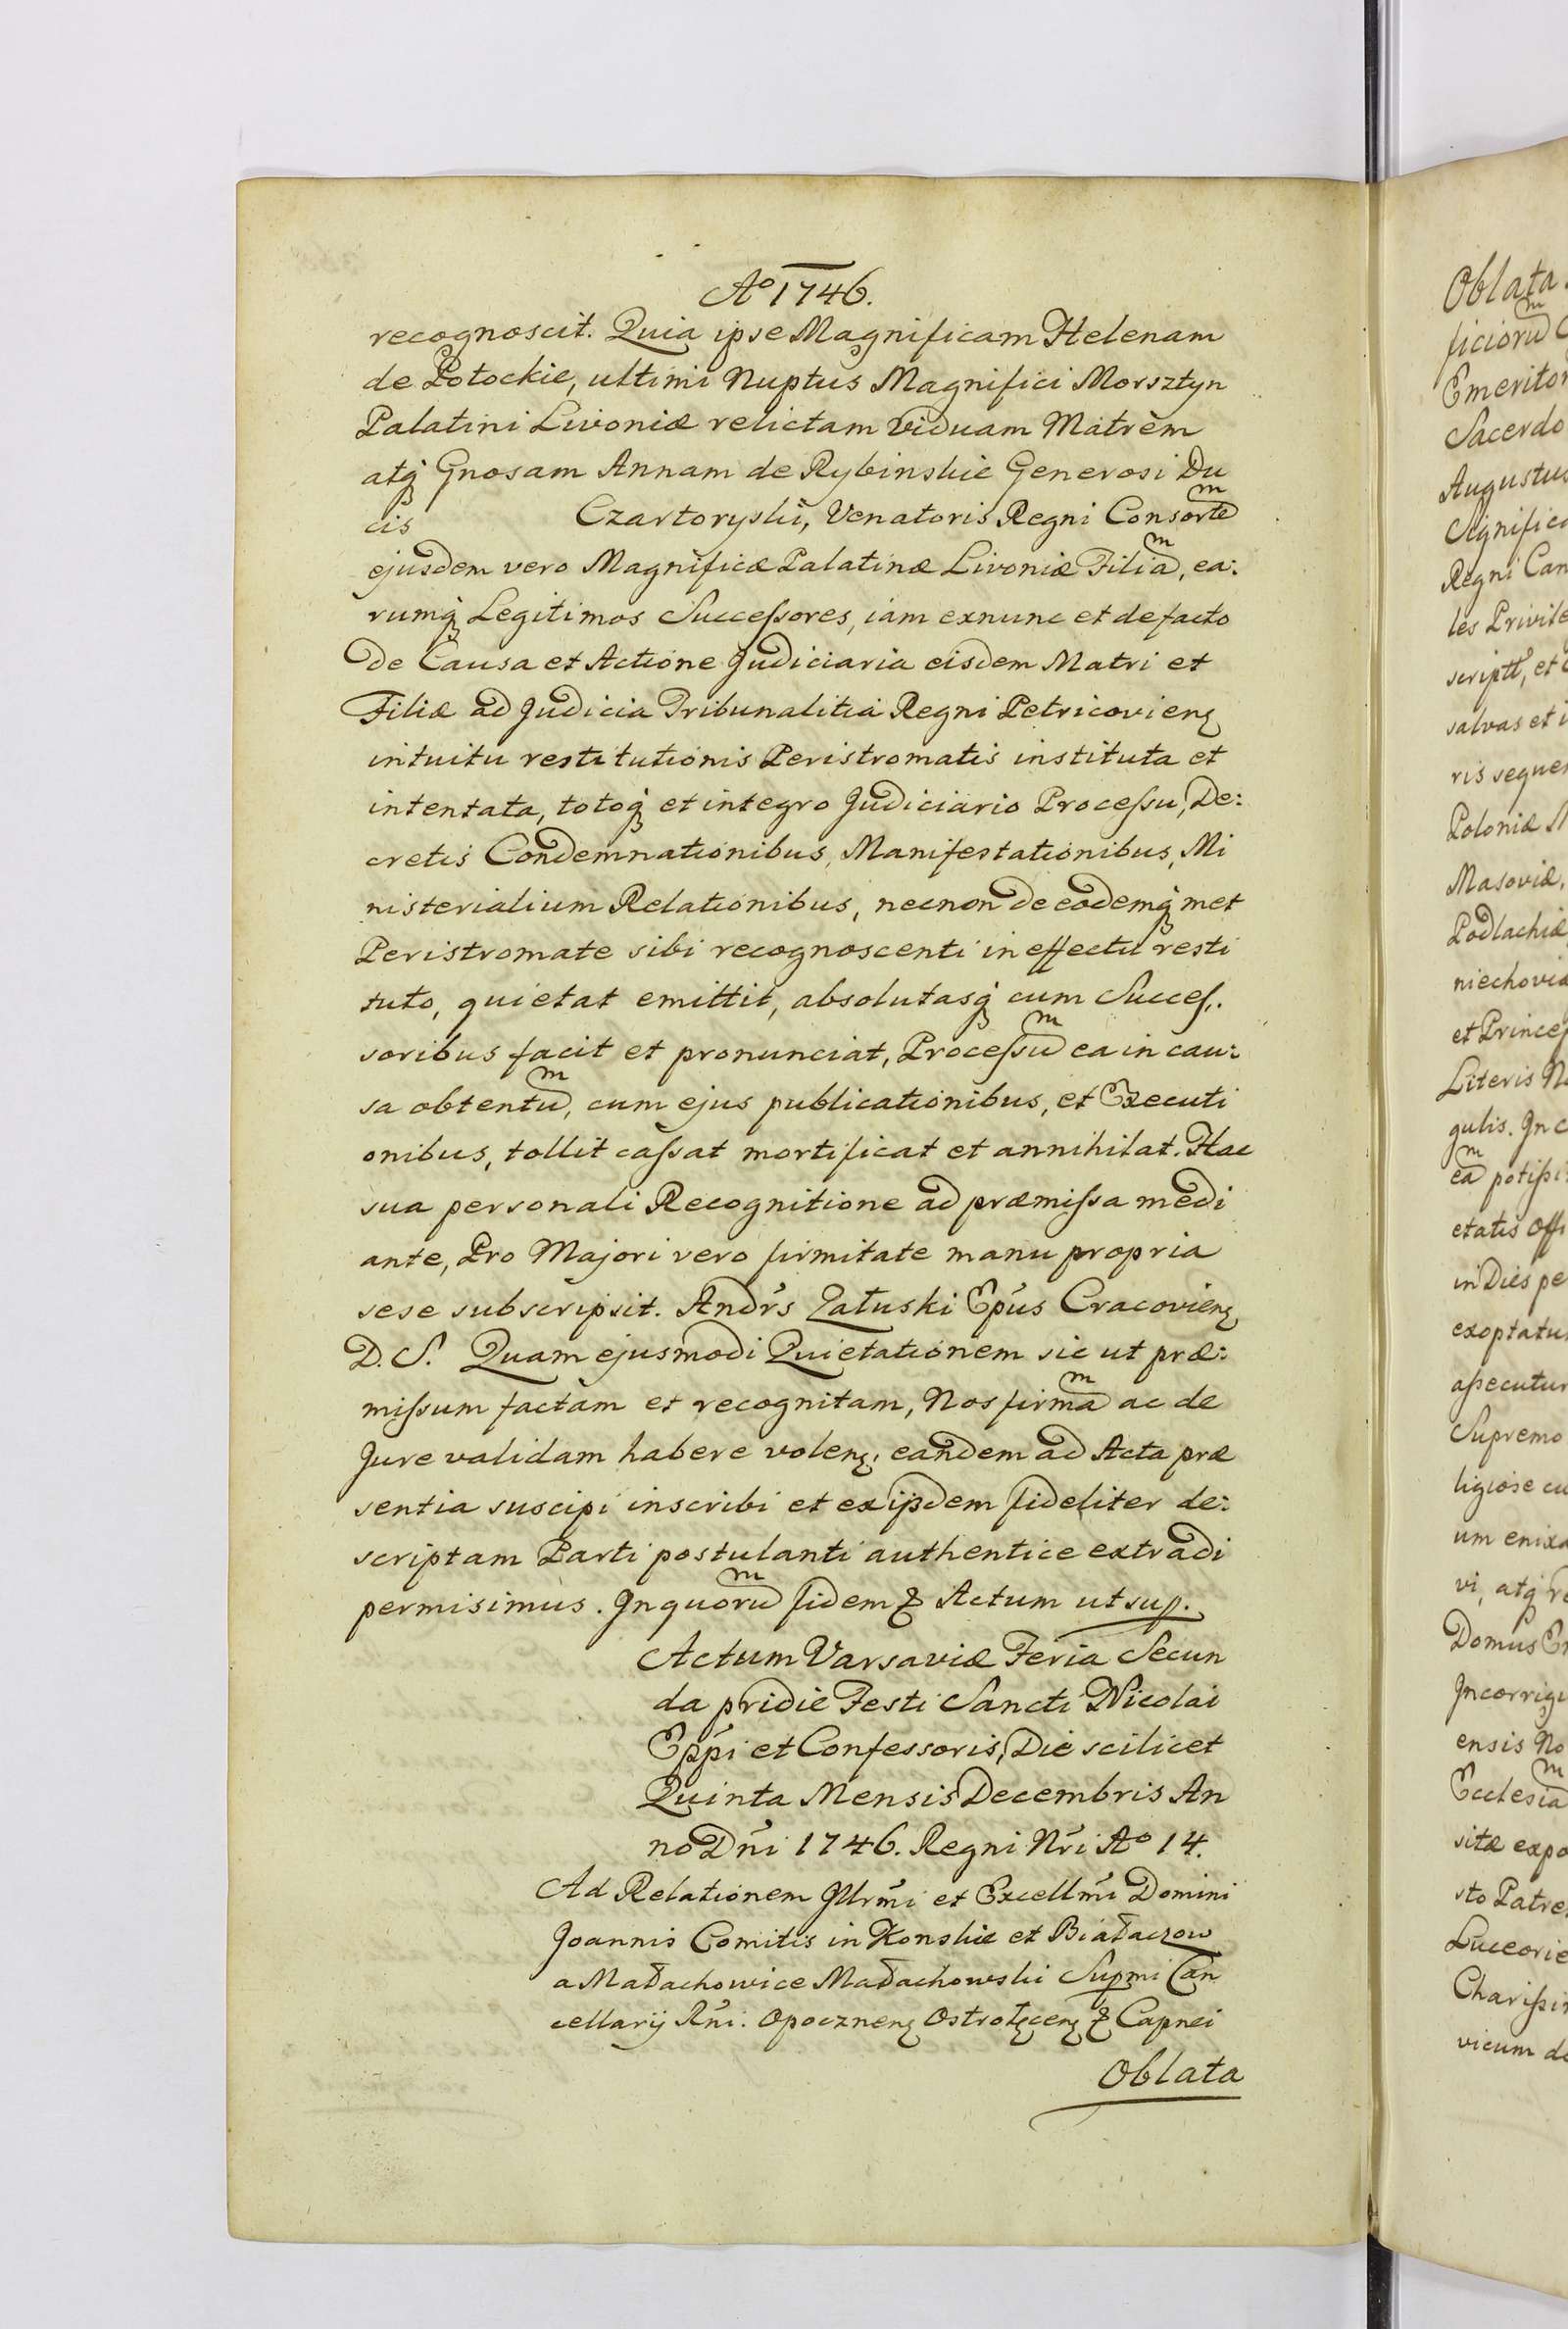 Aº 1746.
recognoscit. Quia ipse Magnificam Helenam
de Potockie, ultimi Nuptus Magnifici Morsztyn
Palatini Livoniæ relictam Viduam Matrem
atq́ Gnosam Annam de Rybinskie Generosi Du
cis Czartoryskii, Venatoris Regni Consortem
ejusdem vero Magnificæ Palatinæ Livoniæ Filiam, ea:
rumq́ Legitimos Successores, iam exnunc et defacto
de Causa et Actione Judiciaria eisdem Matri et
Filiæ ad Judicia Tribunalitia Regni Petricovien̄
intuitu restitutionis Peristromatis instituta et
intentata, totoq́ et integro Judiciario Processu, De:
cretis Condemnationibus, Manifestationibus, Mi
nisterialium Relationibus, necnon de eodemq́ met
Peristromate sibi recognoscenti in effectu resti
tuto, quietat emittit, absolutasq́ cum Succes:
soribus facit et pronunciat, Processum ea in cau:
sa obtentum, cum ejus publicationibus, et Executi
onibus, tollit cassat mortificat et annihilat. Hac
sua personali Recognitione ad præmissa medi
ante, Pro Majori vero firmitate manu propria
sese subscripsit. Andrs Załuski Epus Cracovien̄
D. S. Quam ejusmodi Quietationem sic ut præ:
missum factam et recognitam, Nos firmam ac de
Jure validam habere volen̄, eandem ad Acta præ
sentia suscipi inscribi et ex ijsdem fideliter de:
scriptam Parti postulanti authentice extradi
permisimus. In quorum fidem & Actum ut sup.
Actum Varsaviæ Feria Secun
da pridie Festi Sancti Nicolai
Eppi et Confessoris, Die scilicet
Quinta Mensis Decembris An
no Dni 1746. Regni Nri Aº 14.
Ad Relationem Illrmi et Excellmi Domini
Joannis Comitis in Konskie et Białaczow
a Małachowice Małachowski Supmi Can
cellarij Rni: Opocznen̄ Ostrołęcen̄ & Capnei
Oblata
Oblata
ficiorum
Emeritor
Sacerdo
Augustus
Significa
Regni Can
les Privile
scriptt, et
salvas et i
ris seque
Poloniæ
Masoviæ,
Podlachiæ
niechoviæ
et Princep
Literis
gulis. In c
eam potissi
etatis Offi
in Dies pe
exoptatu
assecutur
Supremo
ligiose cu
um enixa
vi, atq́ re
Domus
Incorrigi
ensis No
Ecclesiam
sitæ expo
sto Patre
Luceorie
Charissi
vicum de